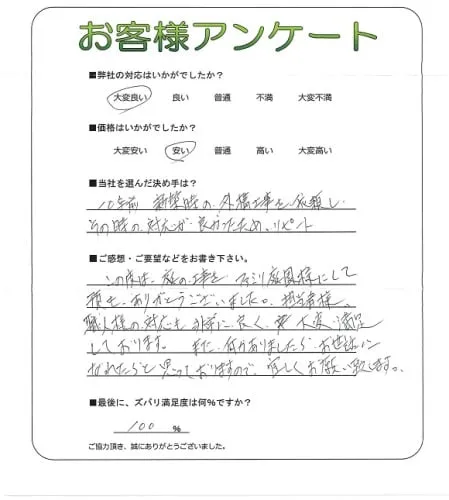 お客様アンケート
■弊社の対応はいかがでしたか？
大変良い 良い 普通 不満 大変不満
■価格はいかがでしたか？
大変安い 安い 普通 高い 大変高い
■当社を選んだ決め手は？
10年前 新築時の外構工事を依頼し
その時の対応が良かったため、リピート
■ご感想・ご要望などをお書き下さい。
この度は、庭の工事を ファミリー庭園様にして
頂き、ありがとうございました。担当者様、
職人様の対応も非常に良く、大変満足
しております。 また、何かありましたら、お世話に
なれたらと思っておりますので、宜しくお願い致します。
■最後に、ズバリ満足度は何%ですか？
100 %
ご協力頂き、誠にありがとうございました。